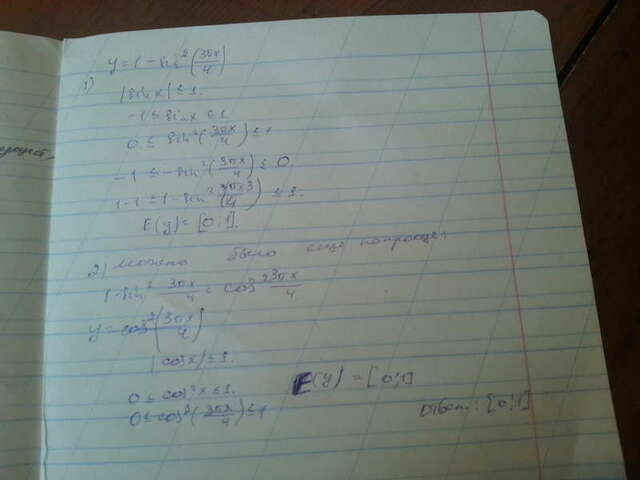 y = 1 - sin²(3πx/4)
1) |sin x| ≤ 1.
-1 ≤ sin x ≤ 1.
0 ≤ sin²(3πx/4) ≤ 1
-1 ≤ -sin²(3πx/4) ≤ 0
1-1 ≤ 1 - sin²(3πx/4) ≤ 1.
E(y) = [0;1].
2) можно было еще попроще:
1-sin² 3πx/4 = cos² 3πx/4
y = cos²(3πx/4)
|cos x| ≤ 1.
0 ≤ cos²x ≤ 1.
0 ≤ cos²(3πx/4) ≤ 1
E(y) = [0;1]
Ответ: [0;1]